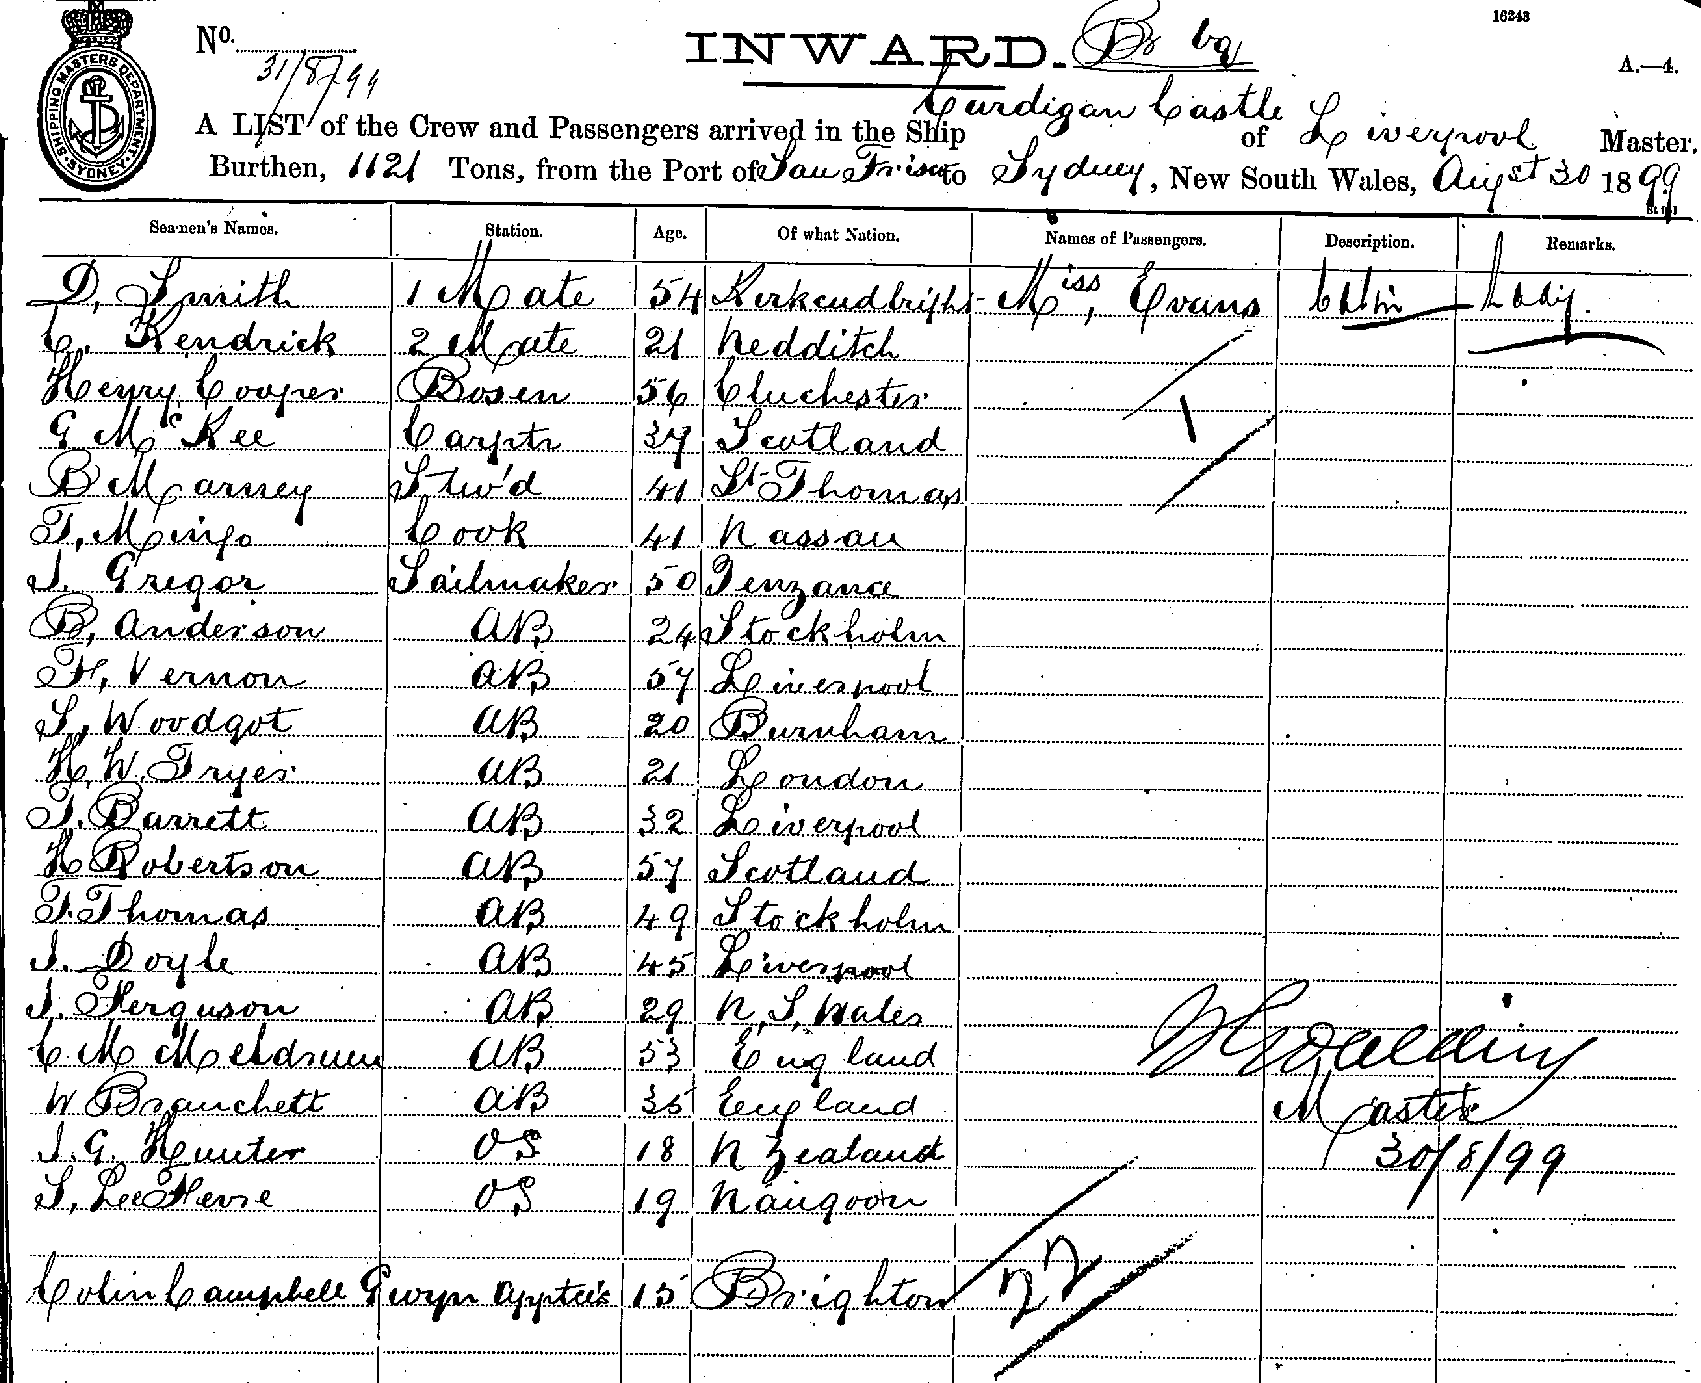 16243
No. 31/8/99
INWARD. Br bq
A.—4.
SHIPPING MASTERS DEPARTMENT SYDNEY
A LIST of the Crew and Passengers arrived in the Ship Cardigan Castle of Liverpool Master.
Burthen, 1121 Tons, from the Port of San Frisco to Sydney, New South Wales, Augst 30 1899
Seamen's Names. Station. Age. Of what Nation. Names of Passengers. Description. Remarks.
D. Smith 1 Mate 54 Kerkcudbright Miss, Evans Cabin Lady.
C. Kendrick 2 Mate 21 Redditch
Henry Cooper Bosen 56 Chichester
G McKee Carptr 37 Scotland 1
B Marney Stw'd 41 St Thomas
T. Mingo Cook 41 Nassau
J. Gregor Sailmaker 50 Penzance
B. Anderson AB 24 Stockholm
F. Vernon AB 57 Liverpool
S. Woodgot AB 20 Burnham
H. W. Fryer AB 21 London
T. Barrett AB 32 Liverpool
H Robertson AB 57 Scotland
F. Thomas AB 49 Stockholm
J. Doyle AB 45 Liverpool
J. Ferguson AB 29 N. S. Wales
C M Meldrum AB 53 England
W Branchett AB 35 England Master
J. G. Hunter OS 18 N Zealand 30/8/99
S. LeeFevre OS 19 Rangoon
Colin Campbell Gwyn Apptce's 15 Brighton 22